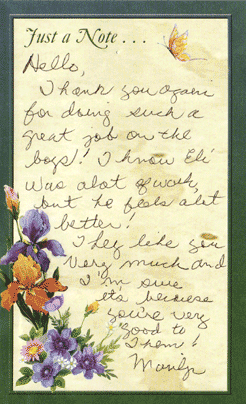 Just a Note . . .
Hello,
I hank you again
for doing such a
great job on the
boys! I know Eli
was alot of work,
but he feels alot
better!
They like you
very much and
I'm sure
it's because
you're very
good to
Them!
Marilyn